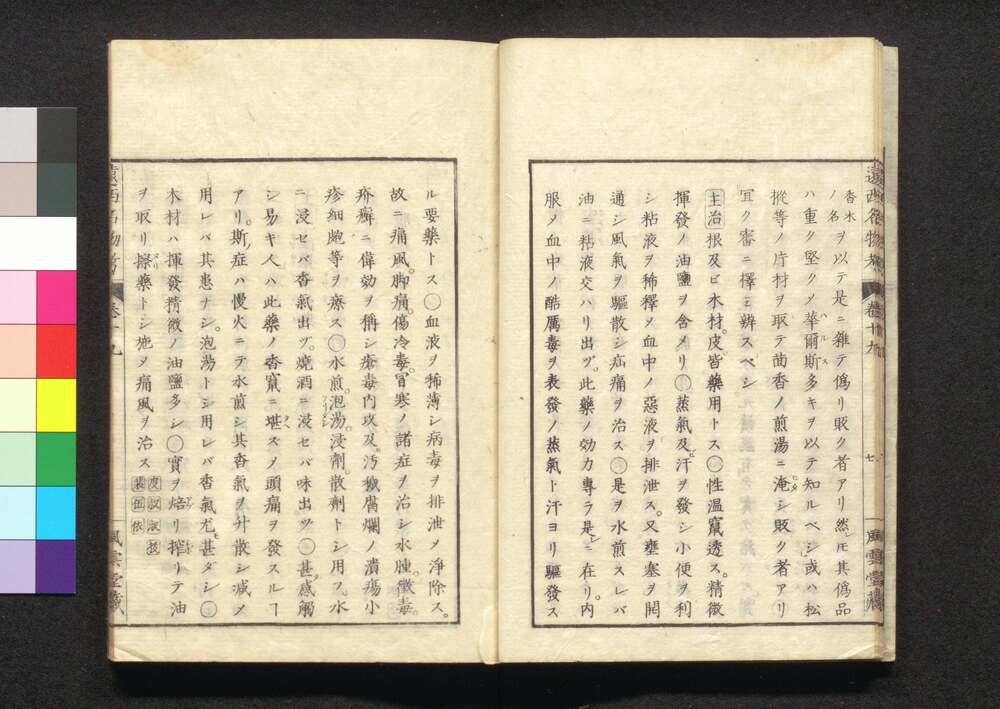 遠西名物考
卷十九
七
風雲堂藏
香木
ノ名ヲ以テ是ニ雜テ僞リ販ク者アリ然𪜈其僞品
ハ重ク堅クメ華爾斯多キヲ以テ知ルベシ或ハ松
樅等ノ片材ヲ取テ茴香ノ煎湯ニ淹シ販ク者アリ
宜ク審ニ擇ミ辨スベシ
主治根及ビ木材皮皆藥用トス○性温竄透ス。精微
揮發ノ油鹽ヲ含メリ○蒸氣及汗ヲ發シ小便ヲ利
シ粘液ヲ稀釋メ血中ノ惡液ヲ排泄ス。又壅塞ヲ開
通シ風氣ヲ驅散シ疝痛ヲ治ス○是ヲ水煎スレバ
油ニ粘液交ハリ出ヅ。此藥ノ効力專ラ是ニ在リ。内
服ノ血中ノ酷厲毒ヲ表發ノ蒸氣ト汗ヨリ驅發ス
ル要藥トス○血液ヲ稀薄シ病毒ヲ排泄メ淨除ス。
故ニ痛風。脚痛。傷冷毒。冒寒ノ諸症ヲ治シ水腫。黴毒。
疥癬ニ偉効ヲ稱シ瘡毒内攻及汚穢腐爛ノ潰瘍小
疹細皰等ヲ療ス○水煎。泡湯。浸劑散劑トシ用フ水
ニ浸セバ香氣出ヅ。燒酒ニ浸セバ味出ヅ○甚感觸
シ易キ人ハ此藥ノ香竄ニ堪ズメ頭痛ヲ發スルヿ
アリ。斯症ハ慢火ニテ水煎シ其香氣ヲ升散シ減メ
用レバ其患ナシ。泡湯トシ用レバ香氣尤甚ダシ○
木材ハ揮發精微ノ油鹽多シ○實ヲ焙リ搾リテ油
ヲ取リ擦藥トシ施メ痛風ヲ治ス
遠西名物考
卷十九
風雲堂藏